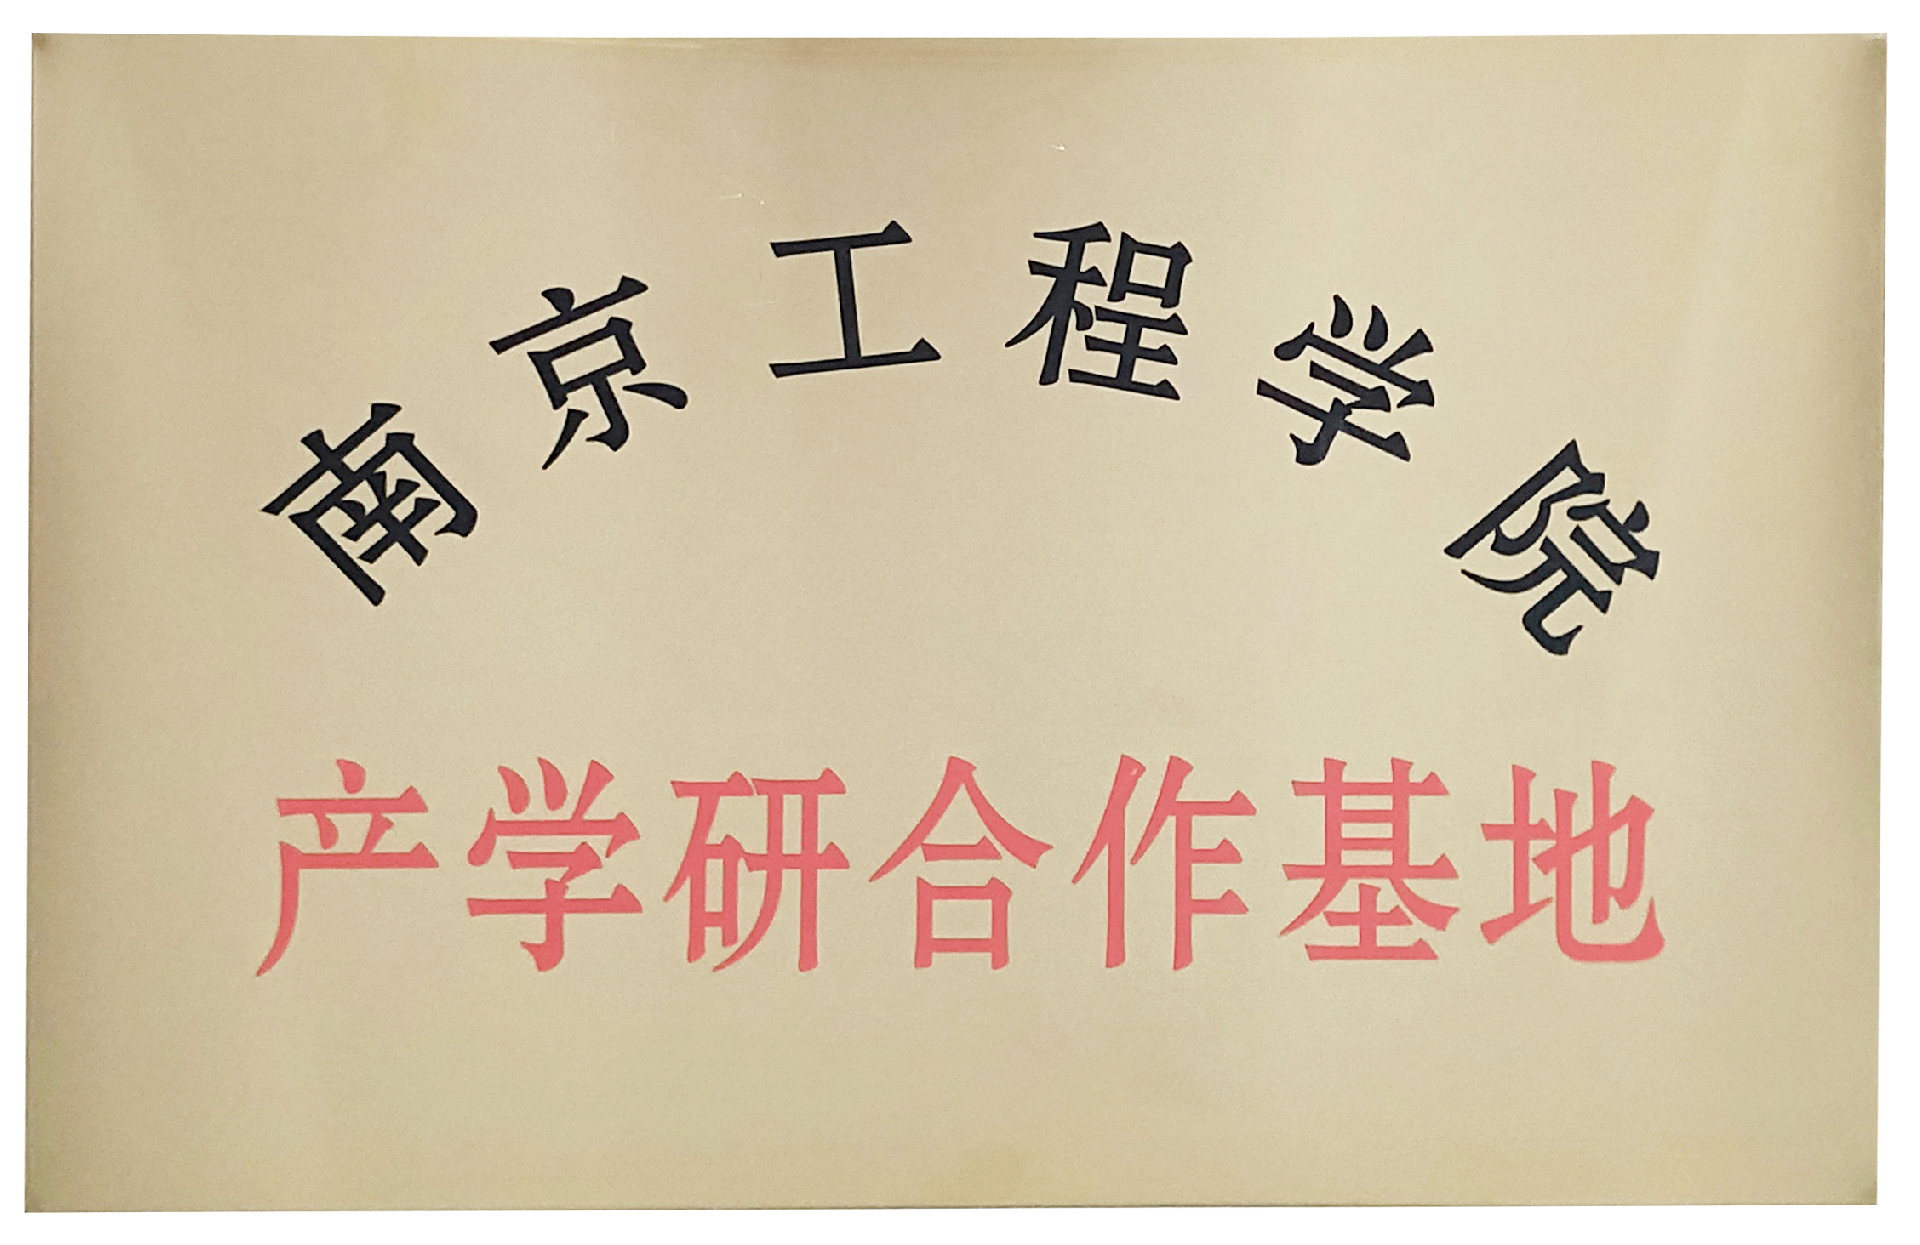 南京工程学院
产学研合作基地